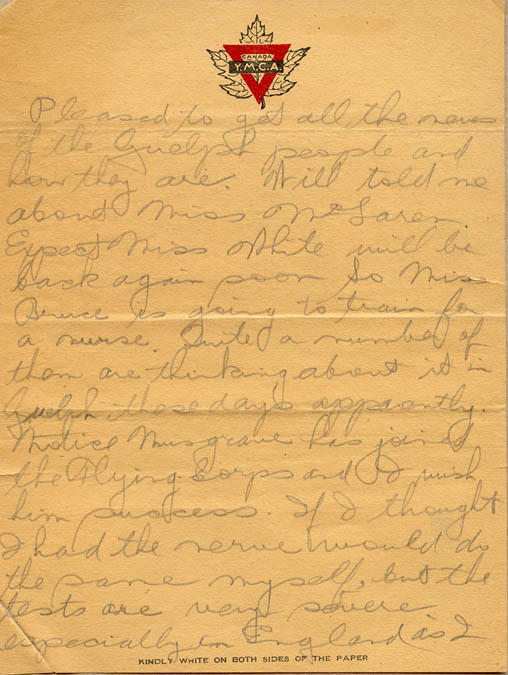 CANADA
Y.M.C.A.
Pleased to get all the news
of the Guelph people and
how they are. Will told me
about Miss McLaren.
Expect Miss White will be
back again soon So Miss
Bruce is going to train for
a nurse. Quite a number of
them are thinking about it in
Guelph these days apparently.
Notice Musgrave has joined
the Flying Corps and I wish
him success. If I thought
I had the nerve would do
the same myself, but the
tests are very severe
especially in England as I
KINDLY WRITE ON BOTH SIDES OF THE PAPER